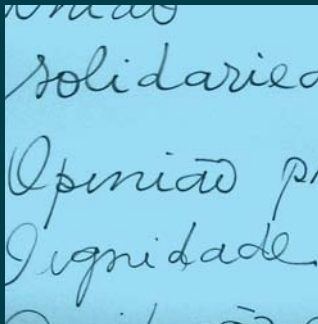 união
solidaried
Opinião pr
Dignidade